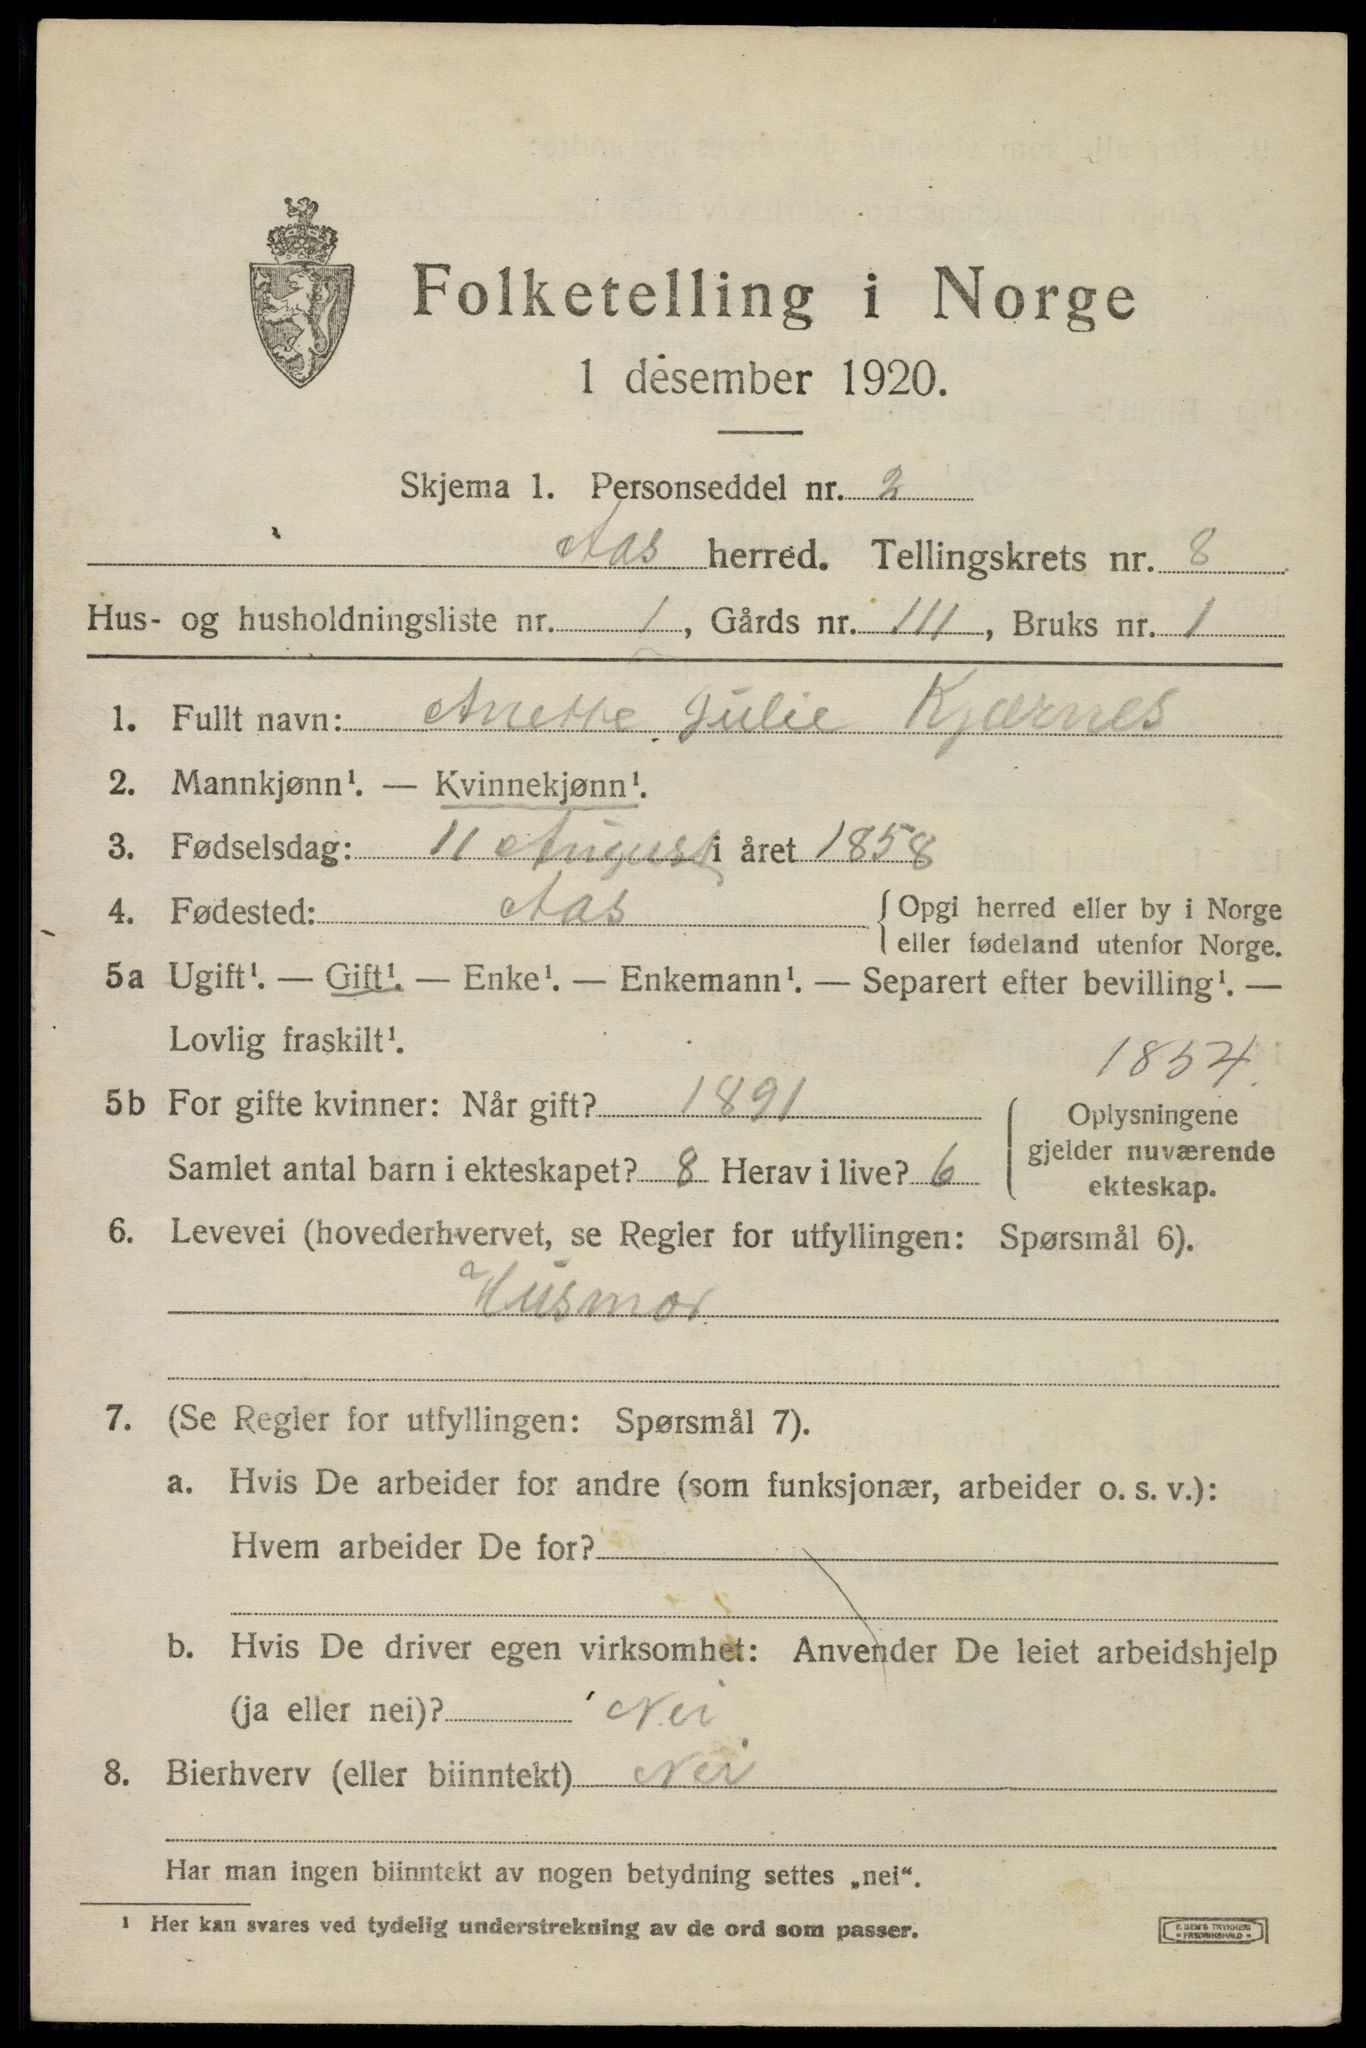 Folketelling i Norge
1 desember 1920.
Skjema 1. Personseddel nr. 2
Aas herred. Tellingskrets nr. 8
Hus- og husholdningsliste nr. 1, Gårds nr. 111, Bruks nr. 1
1. Fullt navn: Anette Julie Kjærnes
2. Mannkjønn¹. — Kvinnekjønn¹.
3. Fødselsdag: 11 August i året 1858
4. Fødested: Aas { Opgi herred eller by i Norge
eller fødeland utenfor Norge.
5a Ugift¹. — Gift¹. — Enke¹. — Enkemann¹. — Separert efter bevilling¹. —
Lovlig fraskilt¹.
1854.
5b For gifte kvinner: Når gift? 1891
Samlet antal barn i ekteskapet? 8 Herav i live? 6
Oplysningene
gjelder nuværende
ekteskap.
6. Levevei (hovederhvervet, se Regler for utfyllingen: Spørsmål 6).
a Husmor
7. (Se Regler for utfyllingen: Spørsmål 7).
a. Hvis De arbeider for andre (som funksjonær, arbeider o. s. v.):
Hvem arbeider De for?
b. Hvis De driver egen virksomhet: Anvender De leiet arbeidshjelp
(ja eller nei)? Nei
8. Bierhverv (eller biinntekt) Nei
Har man ingen biinntekt av nogen betydning settes „nei“.
¹ Her kan svares ved tydelig understrekning av de ord som passer.
E. SEM'S TRYKKERI
FREDRIKSHALD